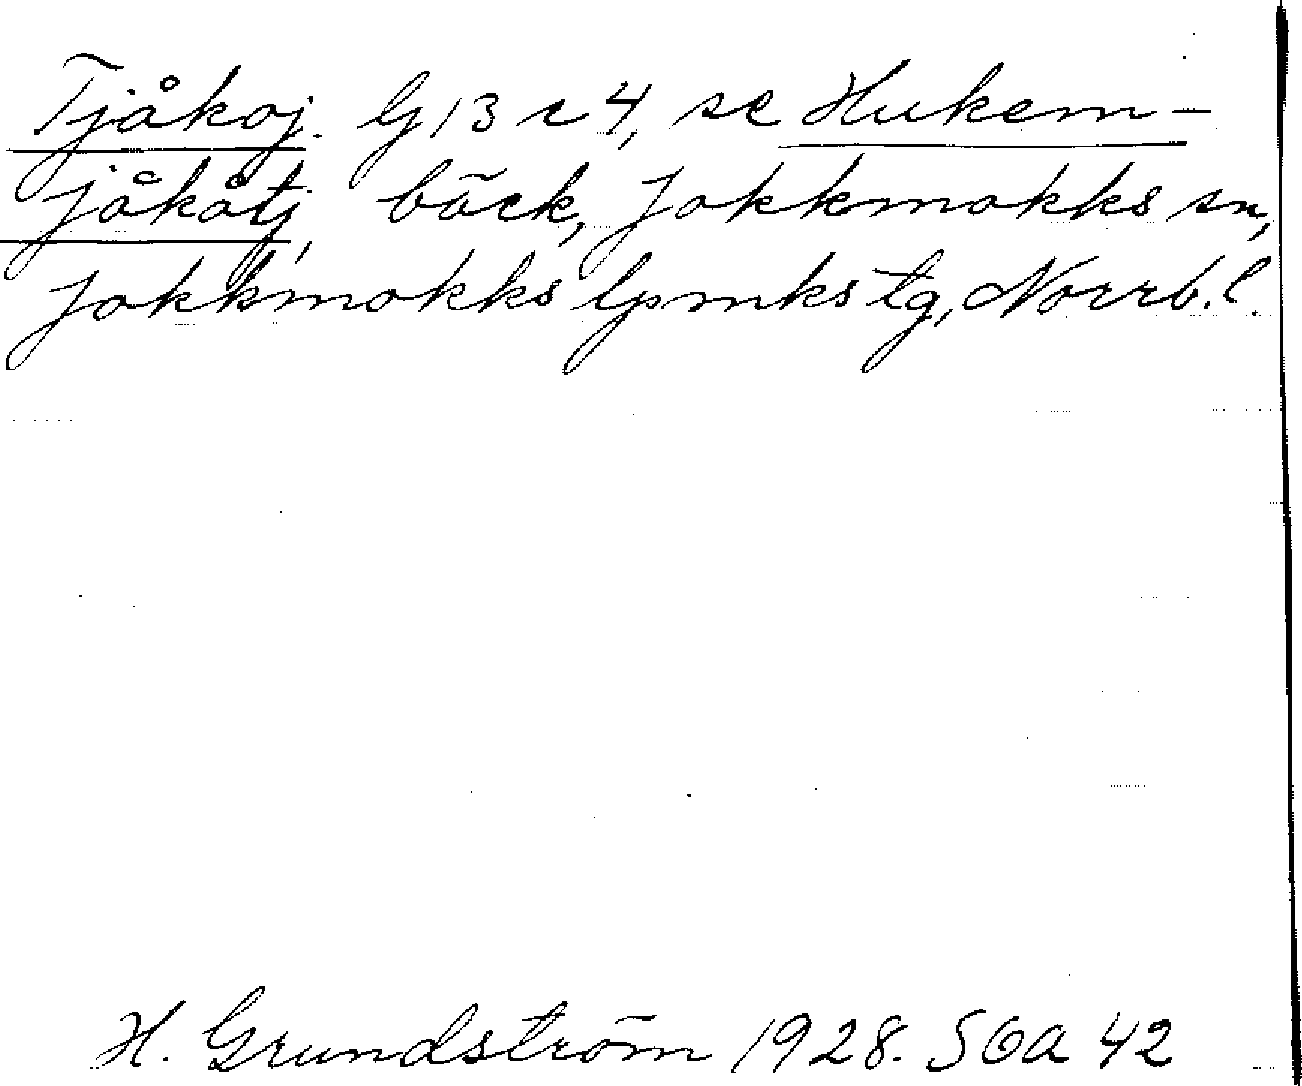 Tjåkoj. G 13 c 4, se Hukem-
jåkåtj, bäck, Jokkmokks sn,
Jokkmokks lpmks tg, Norrb. l.
H. Grundström 1928. SOA 42